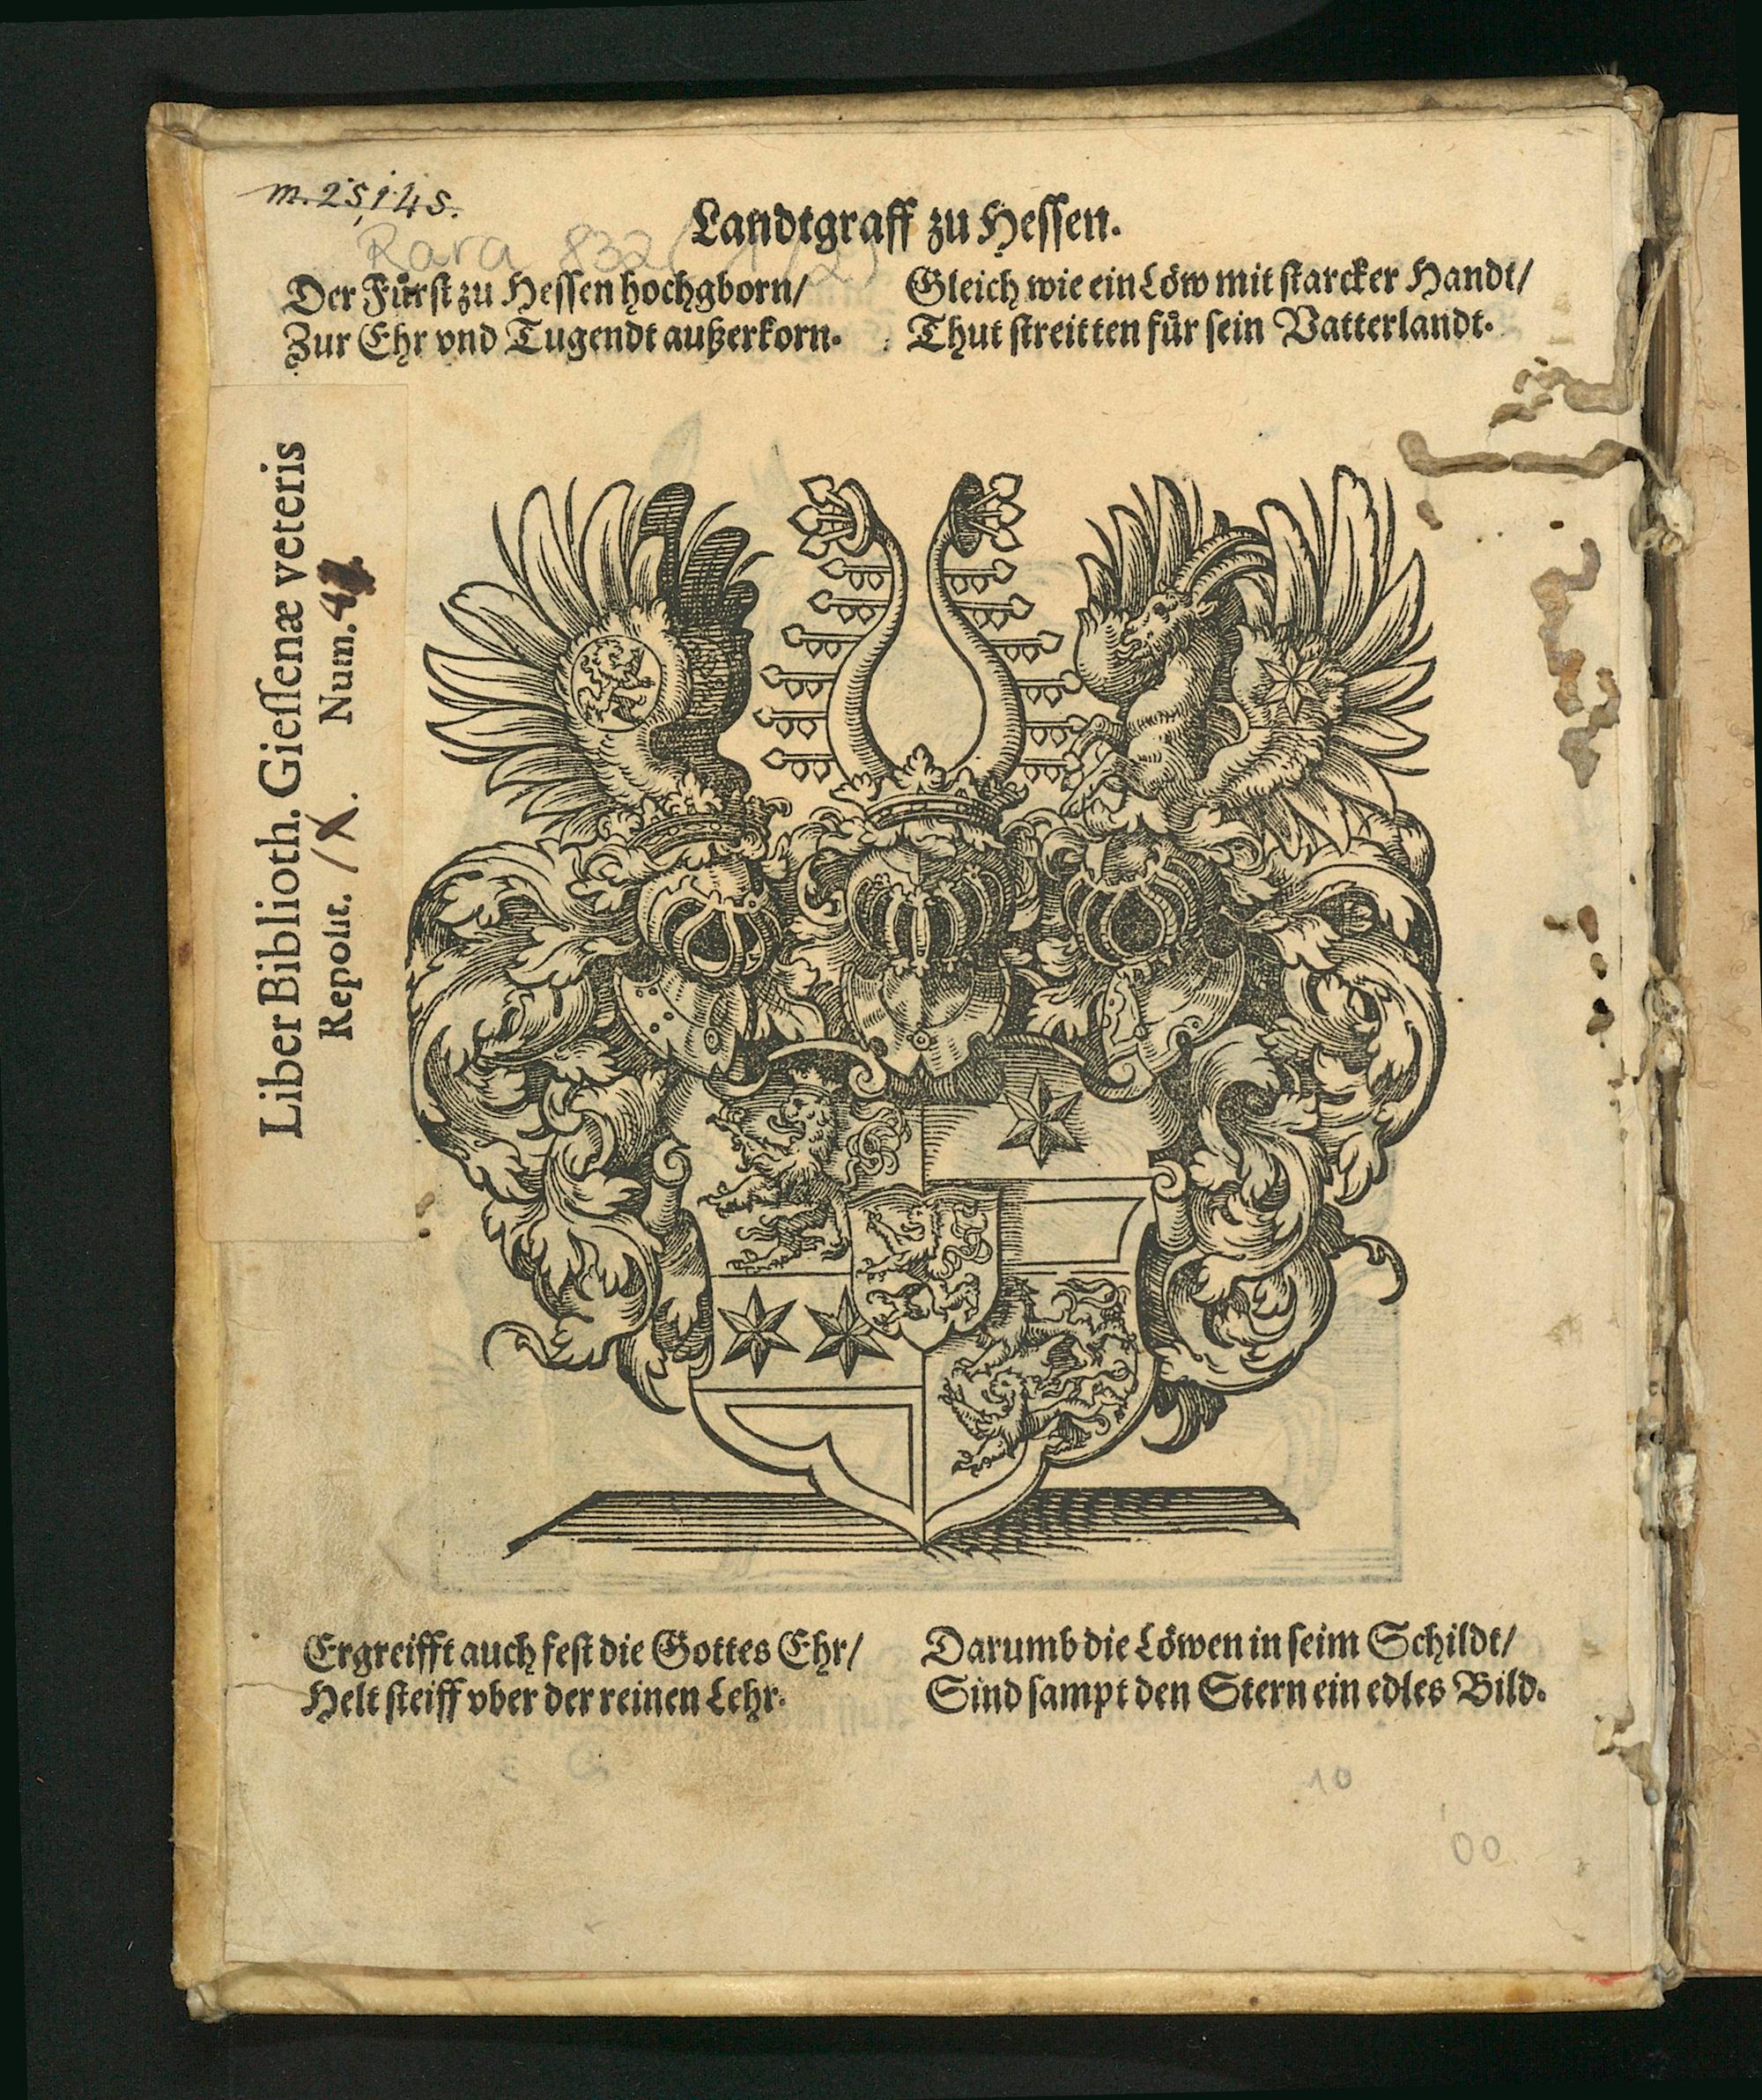 m. 25,145.
Landtgraff zu Hessen.
Rara 832
Der Fürst zu Hessen hochgborn/
Zur Ehr vnd Tugendt außerkorn.
Gleich wie ein Löw mit starcker Handt/
Thut streitten für sein Vatterlandt.
Liber Biblioth. Giessenæ veteris
Reposit. IX. Num.
Ergreifft auch fest die Gottes Ehr/
Helt steiff vber der reinen Lehr.
Darumb die Löwen in seim Schildt/
Sind sampt den Stern ein edles Bild.
10
00